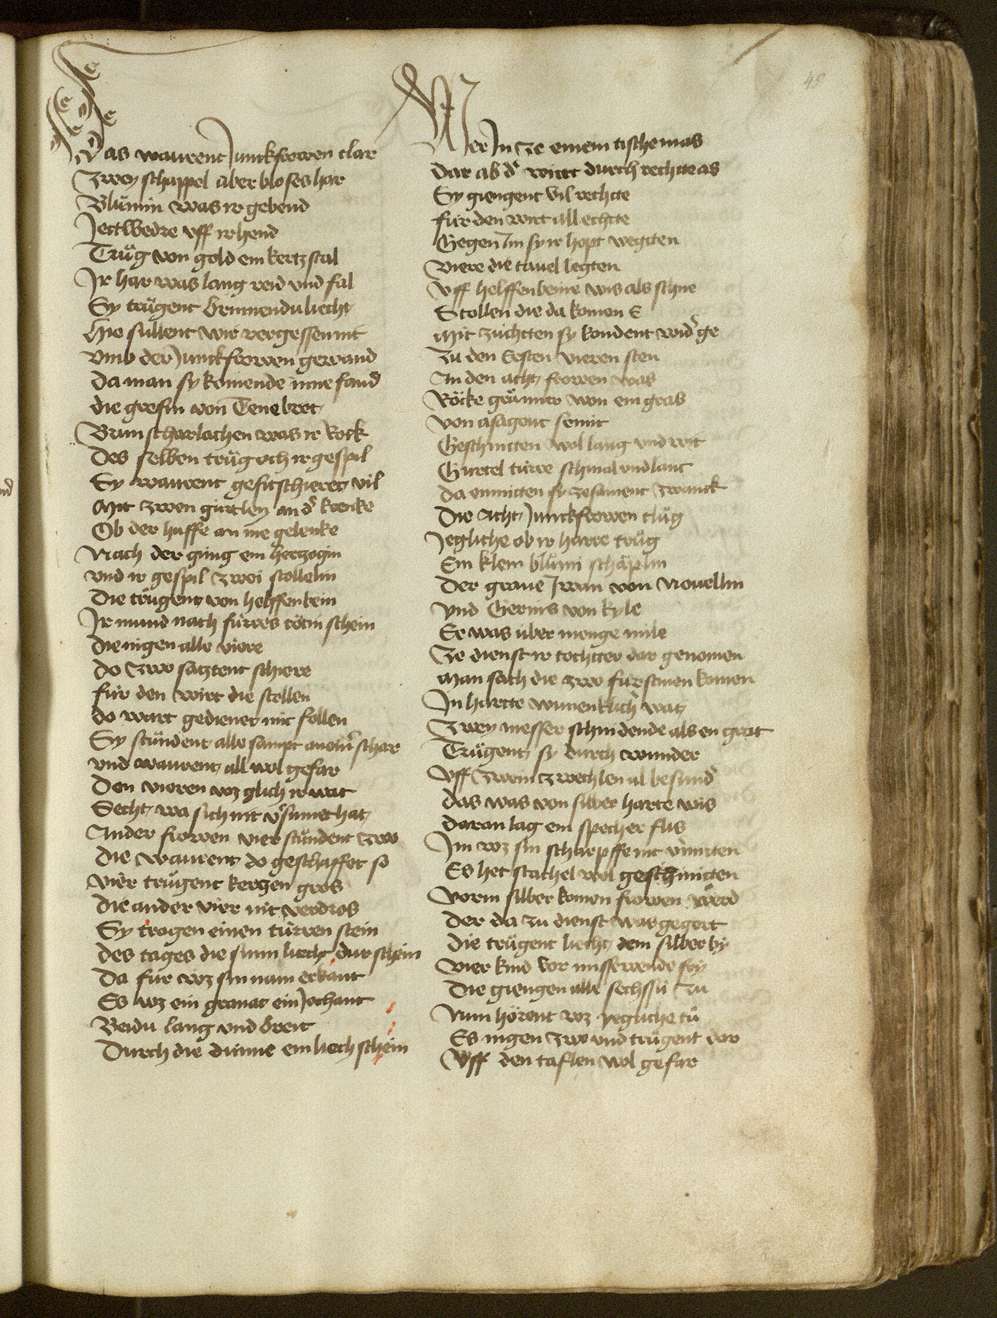 45
Das waurent Junckfrowen clar
Zwey schappel über bloses har
Blůmin was ir gebend
Jettwedre vff ir hend
Trůg von gold ein kertzstal
Ir har was lang reid vnd fal
Sy trůgent brinnendu liecht
Hie sullent wir vergessen nit
Vmb der Junckfrowen gewand
Da man sy komende inne fand
die grefin von Tenebret
Brun scharlachen was ir Rock
Des selben trůg och ir gespil
Sy waurent gefitschieret vil
Mit zwen gürtlen an dʼ krenke
Ob der huffe an ine gelenke
Nach der ging ein hertzogin
vnd ir gespil zwei stollelin
Die trůgent von helffenbein
Ir mund nach fürres rötin schein
die nigen alle viere
do zwo satztent schiere
für den wirt die stollen
do wart gedienet mit follen
Sy stůndent alle sampt an ein schar
vnd waurent all wol gefar
Den vieren wz glich ir wat
Secht wa sich nit vʼsumet hat
Ander frowen vier stůndent zwo
Die waurent do geschaffet so
Vier trůgent kergen gros
die ander vier nit verdros
Sy trogen einen türren stein
des tages die sunn liecht dur schein
Da für wz sin nam erkant
Es wz ein granat ein Jochant
Beidu lang vnd breit
Durch die dünne ein liech schein
Wer In ze einem tische mas
Dar ab dʼ wirt durch rechtte as
Sy giengent vil rechtte
für den wirt all echtte
Gegen Im sy ir hopt wegtten
Viere die tauel legten
Vff helffenbeine wis als schne
Stollen die da komen E
Mit züchtten sy kondent widʼ ge
Zu den Ersten vieren sten
An den acht frowen was
Röcke grůnner won ein gras
Von asagout semit
Geschnitten wol lang vnd wit
Gürtel türre schmal vnd lanc
Da enmitten sy zesament zwanck
Die Acht Junckfrowen clůg
Jegliche ob ir harre trůg
Ein klein blůmi schäplin
Der graue Iwan von Nouellin
Vnd Gernis von kyle
Er was über menge mile
Ze dienst ir tochtter dar genomen
Man sach die zwo fürstinen komen
In hartte winenklichʼ wat
Zwey messer schnidende als en grat
Trůgent sy durch wunder
Vff zwein tzwechlen al besundʼ
das was von silber harte wis
daran lag ein specher flis
Im wz sin scherpffe nit vʼmiten
Es het stachel wol geschnitten
Vorm silber komen frowen werd
Der da zu dienst was gegert
Die trůgent liecht dem silber by
Vier kind vor misserwende fry
Die giengen alle sechssu zu
Nun hörent wz yegliche tů
Es nigen zwo vnd trůgent dar
Vff den taflen wol gefar